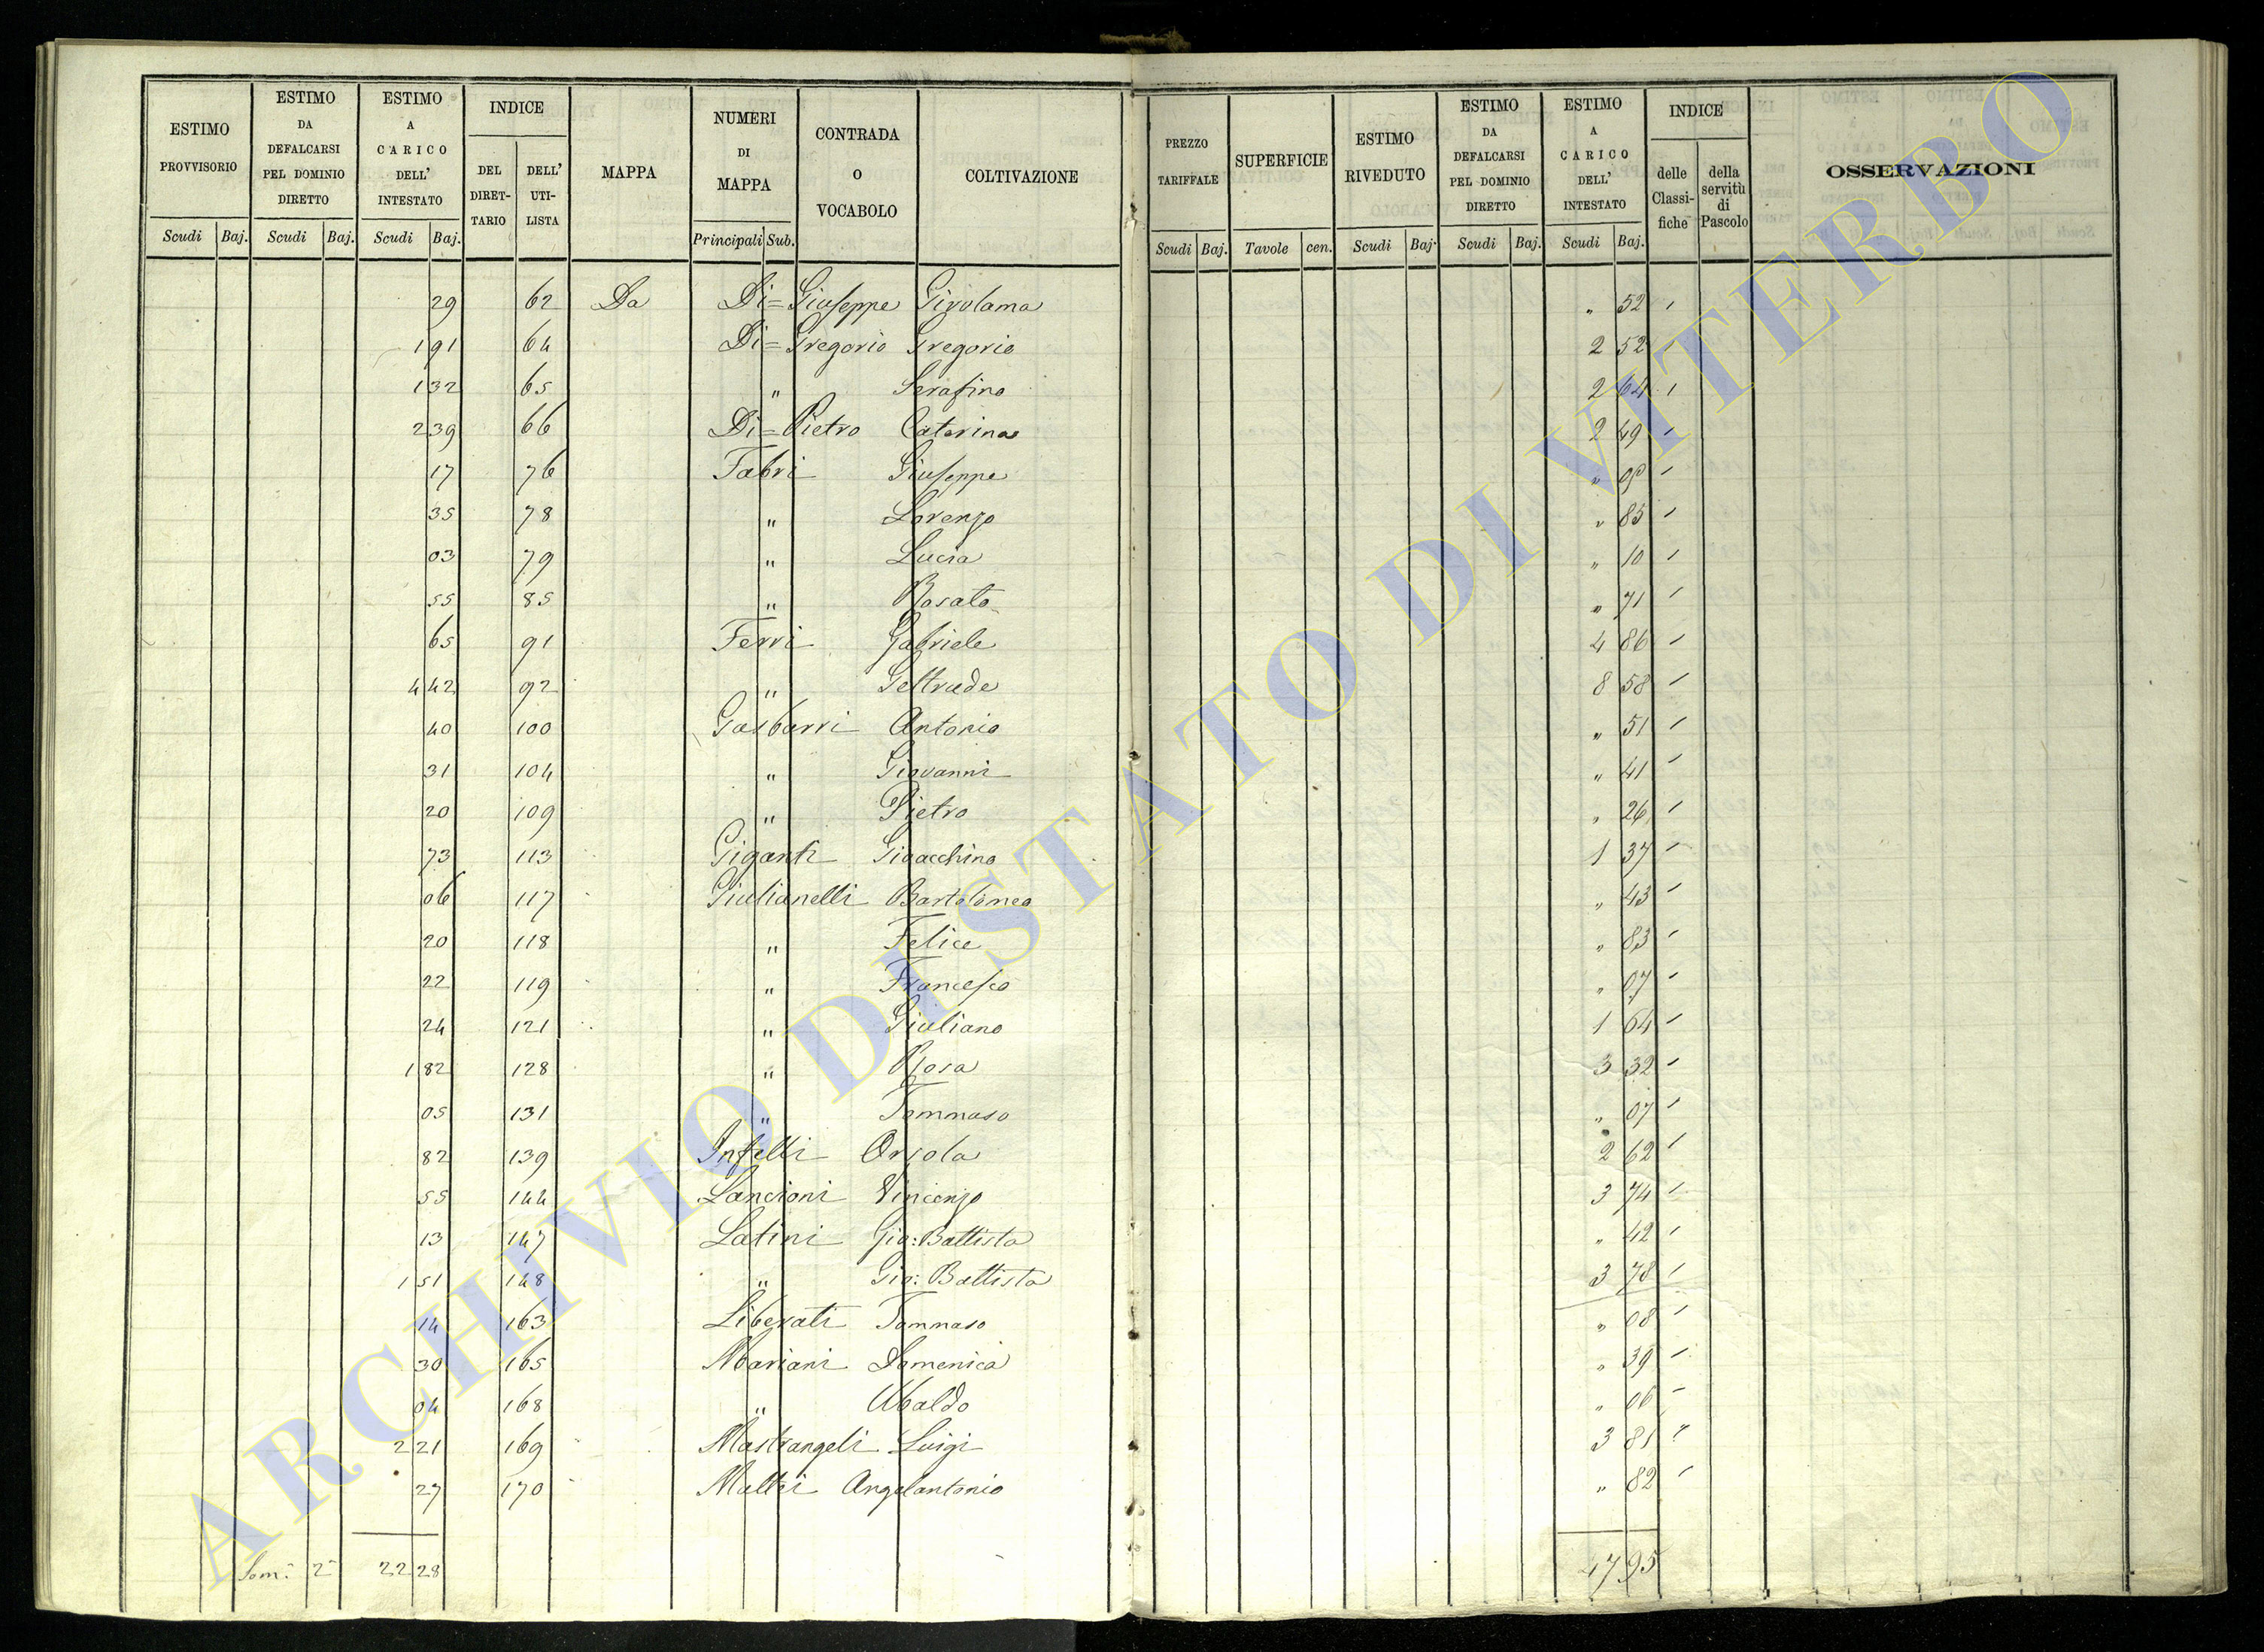 ESTIMO PROVVISORIO
Scudi Baj.
ESTIMO DA DEFALCARSI PEL DOMINIO DIRETTO
Scudi Baj.
ESTIMO A CARICO DELL' INTESTATO
Scudi Baj.
INDICE
DEL DIRET-TARIO
DELL' UTI-LISTA
MAPPA
NUMERI DI MAPPA
Principali Sub.
CONTRADA O VOCABOLO
COLTIVAZIONE
PREZZO TARIFFALE
Scudi Baj.
SUPERFICIE
Tavole cen.
ESTIMO RIVEDUTO
Scudi Baj.
ESTIMO DA DEFALCARSI PEL DOMINIO DIRETTO
Scudi Baj.
ESTIMO A CARICO DELL' INTESTATO
Scudi Baj.
INDICE
delle Classi-fiche
della servitù di Pascolo
OSSERVAZIONI
29 62 Da Di= Giuseppe Girolama " 52
1 91 64 Di= Gregorio Gregorio 2 52
1 32 65 " Serafino 2 64
2 39 66 Di= Pietro Caterina 2 49
17 76 Fabri Giuseppe "
35 78 " Lorenzo " 83
03 79 " Lucia " 10
55 85 " Rosato " 71
65 91 Ferri Gabriele 4 86
4 42 92 " Geltrude 8 58
40 100 Gasbarri Antonio " 51
31 104 " Giovanni " 41
20 109 " Pietro " 26
73 113 Giganti Gioacchino 1 37
06 117 Giulianelli Bartolomeo " 43
20 118 " Felice " 83
22 119 " Francesco " 07
24 121 " Giuliano 1 64
1 82 128 " Rosa 3 32
05 131 " Tommaso " 07
82 139 Infelli Orsola 2 62
55 144 Lancioni Vincenzo 3 74
13 147 Latini Gio: Battista " 42
1 51 148 " Gio: Battista 3 78
14 163 Liberati Tommaso " 08
30 165 Mariani Domenica " 39
04 168 " Ubaldo " 06
2 21 169 Mastrangeli Luigi 3 81
27 170 Mattei Angelantonio " 82
Som: 2ª 22 28 47 95
ARCHIVIO DI STATO DI VITERBO